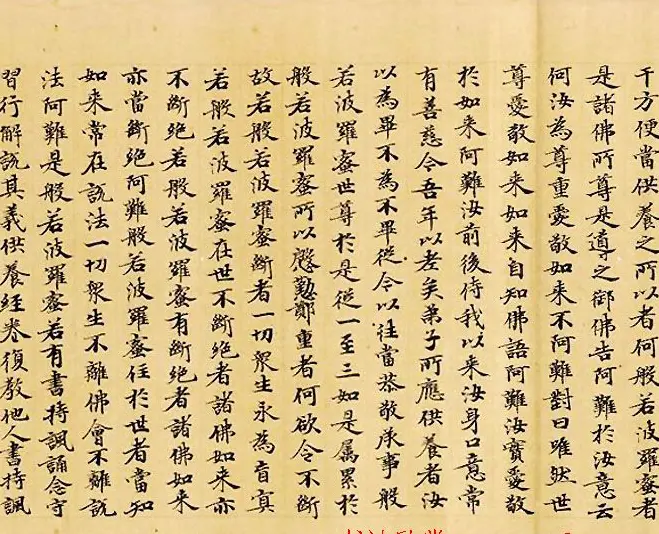 千方便當供養之所以者何般若波羅蜜者
是諸佛所尊是導之御佛告阿難於汝意云
何汝為尊重愛敬如來不阿難對曰唯然世
尊愛敬如來如來自知佛語阿難汝實愛敬
於如來阿難汝前後侍我以來汝身口意常
有善慈令吾年以老矣弟子所應供養者汝
以為畢不為不畢從今以往當恭敬承事般
若波羅蜜世尊於是從一至三如是属累於
般若波羅蜜所以慇懃鄭重者何欲令不斷
故若般若波羅蜜斷者一切衆生永為盲冥
若般若波羅蜜在世不斷絕者諸佛如來亦
不斷絕若般若波羅蜜有斷絕者諸佛如來
亦當斷絕阿難般若波羅蜜住於世者當知
如來常在說法一切衆生不離佛會不離說
法阿難是般若波羅蜜若有書持諷誦念守
習行解說其義供養經卷復教他人書持諷